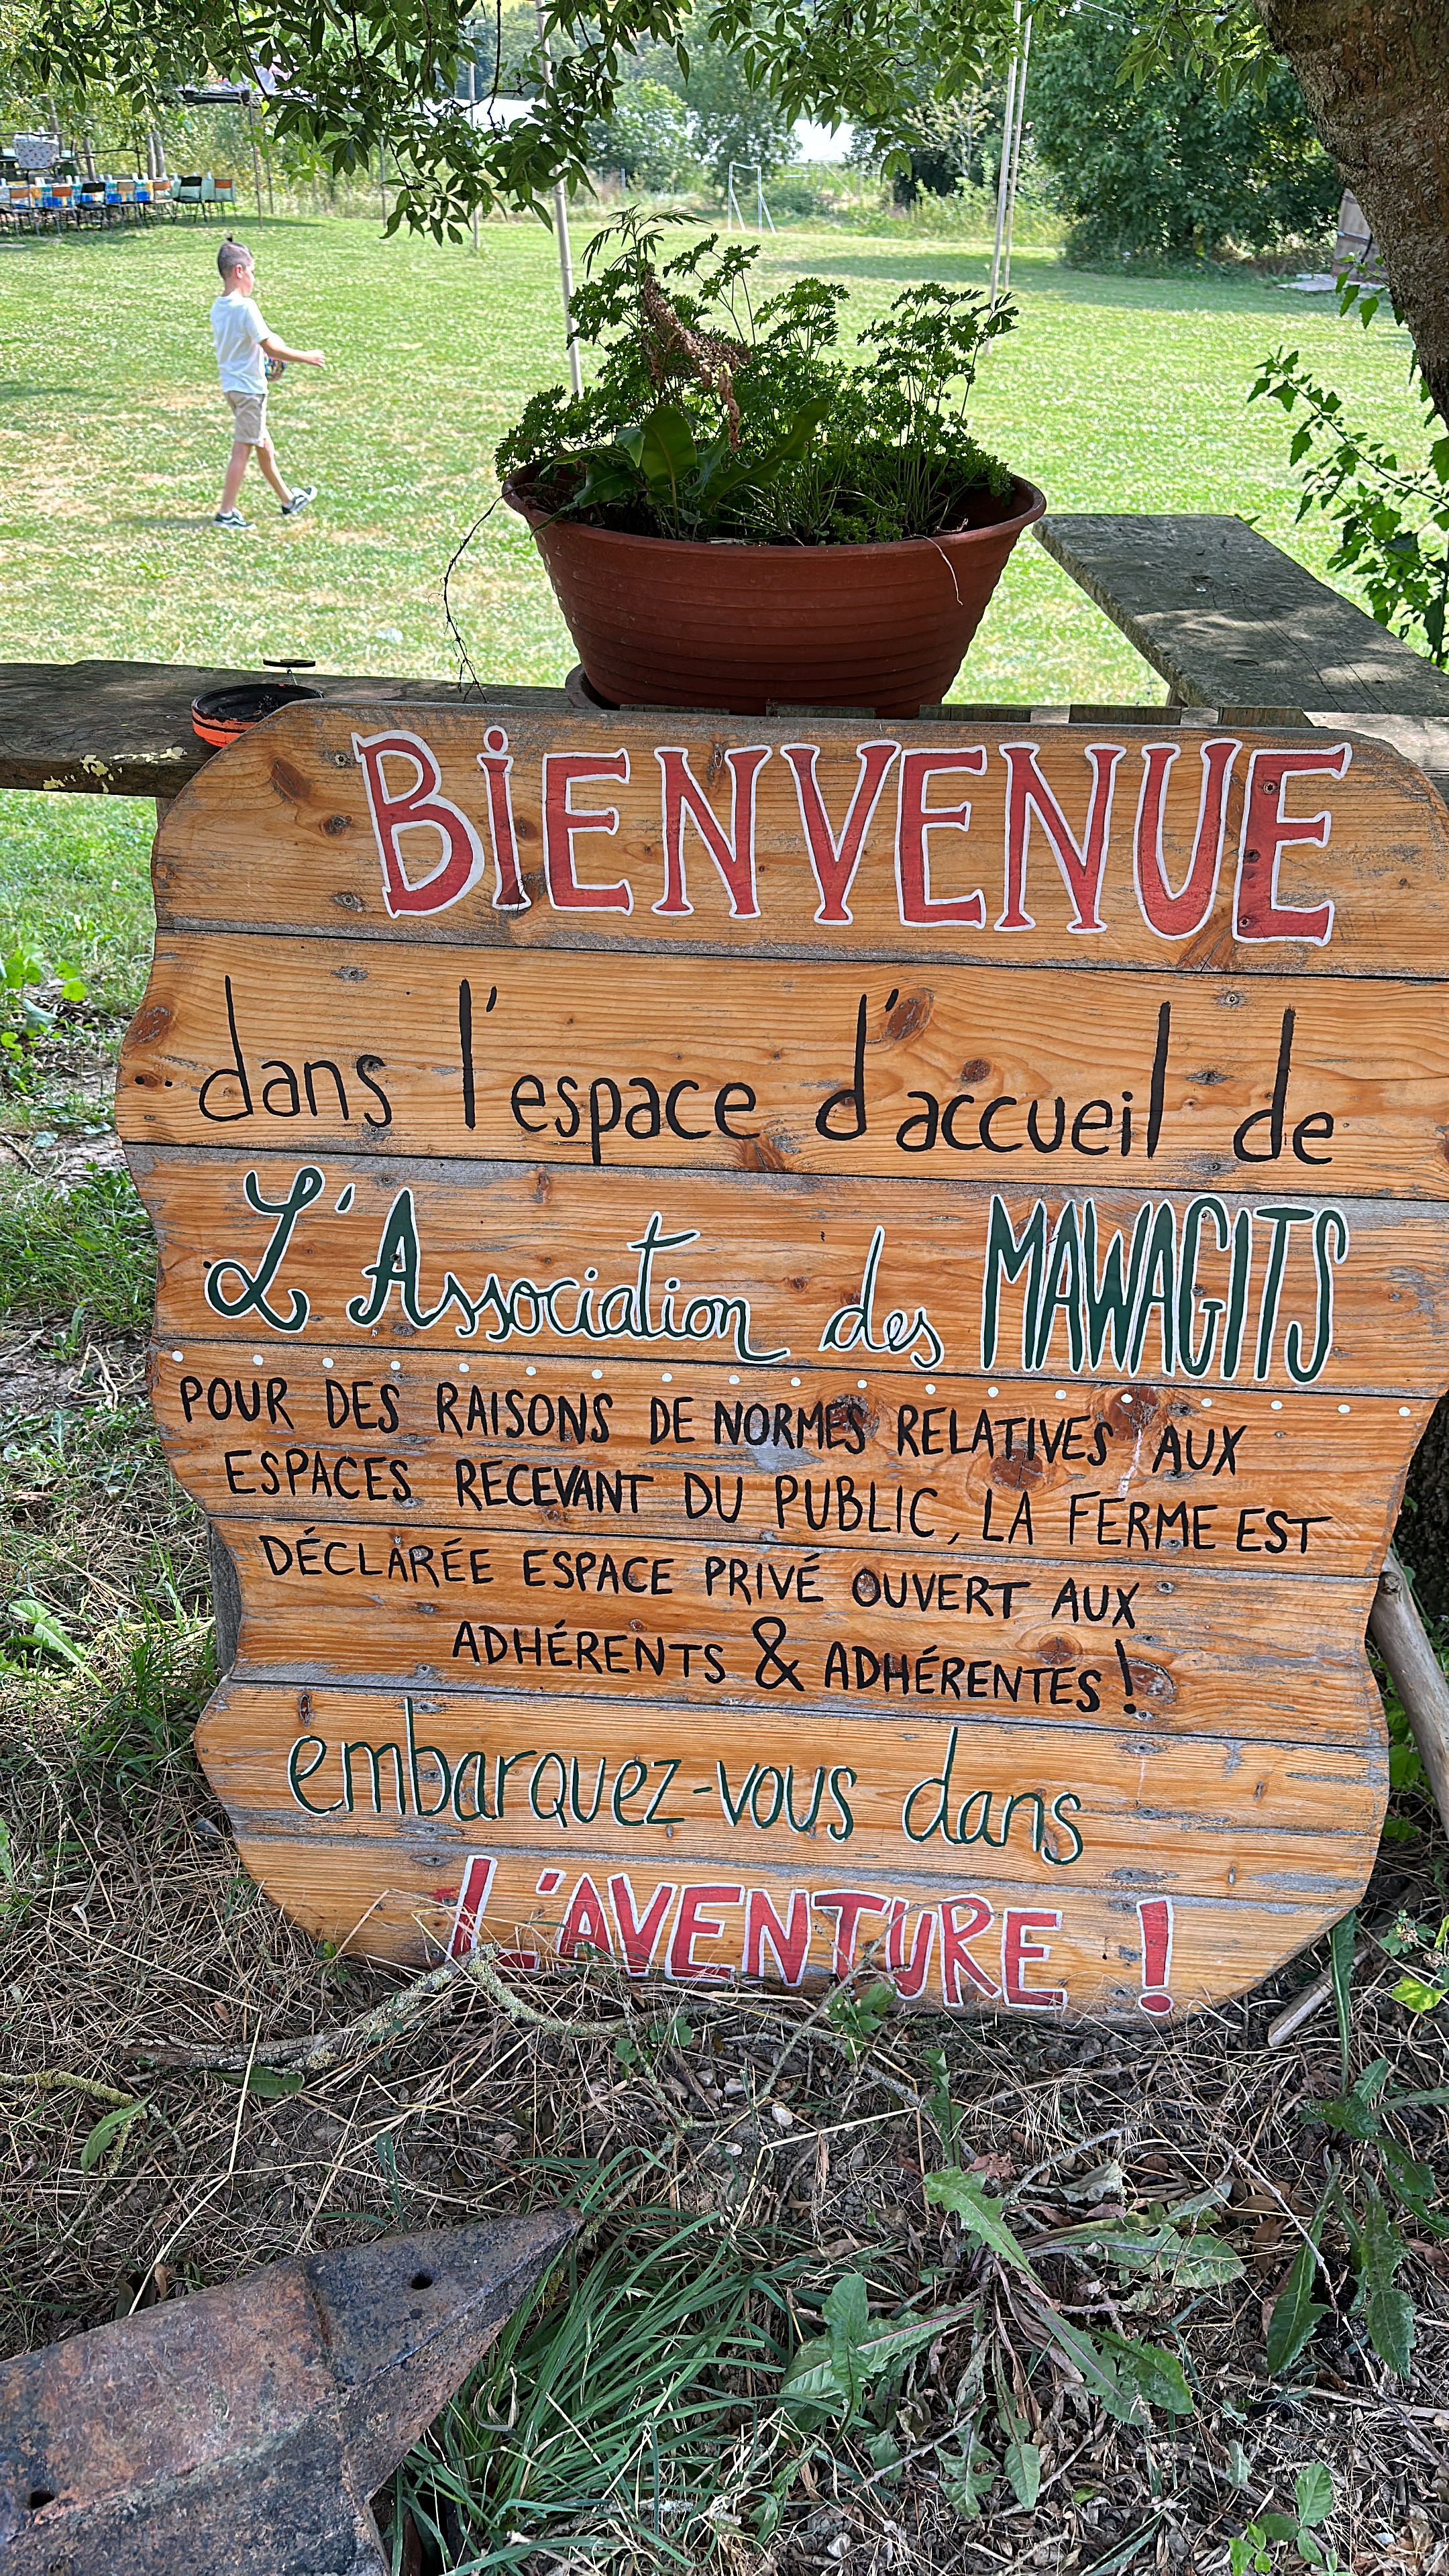 BiENVENUE
dans l'espace d'accueil de
L'Association des MAWAGITS
POUR DES RAISONS DE NORMES RELATIVES AUX
ESPACES RECEVANT DU PUBLIC, LA FERME EST
DÉCLARÉE ESPACE PRIVÉ OUVERT AUX
ADHÉRENTS & ADHÉRENTES !
embarquez-vous dans
L'AVENTURE !